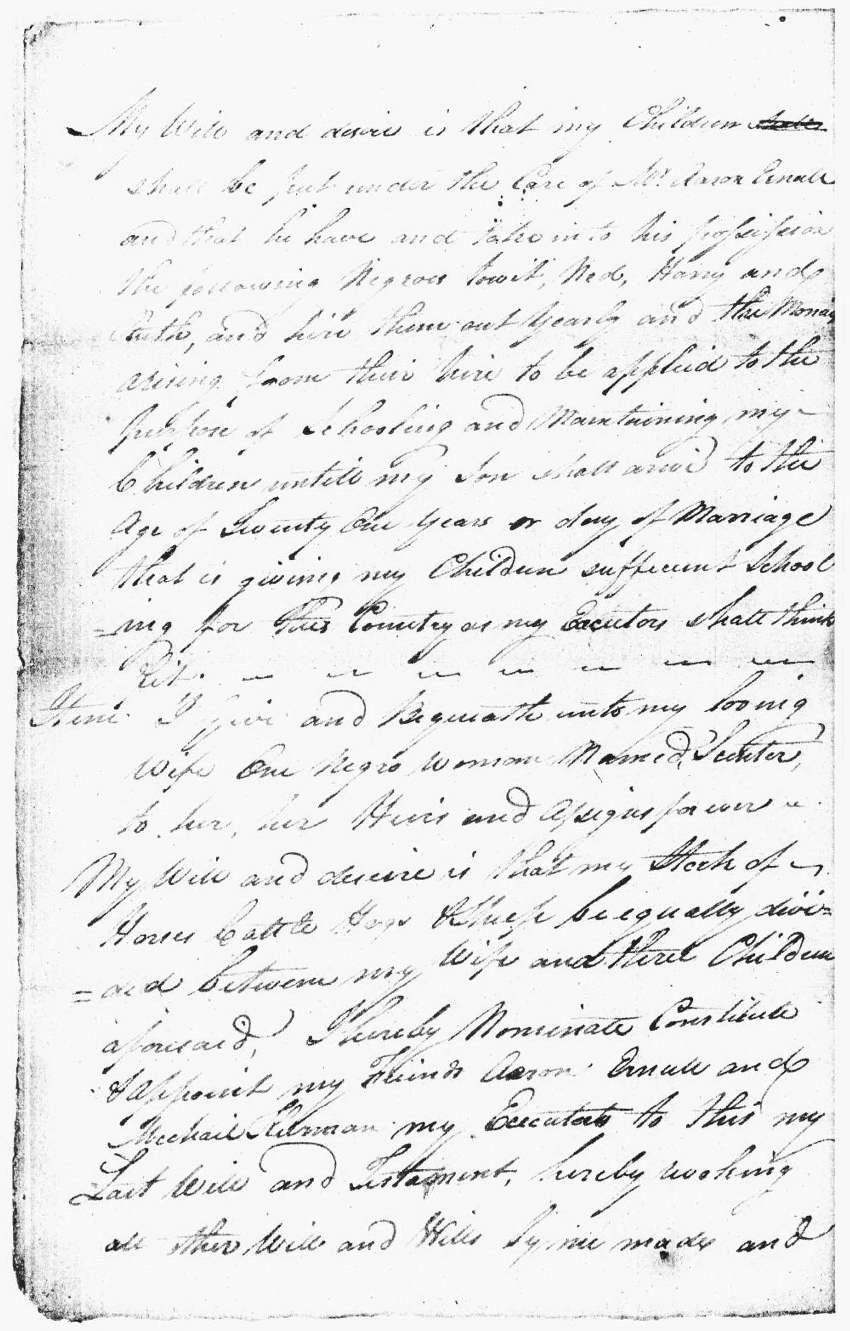 My Will and desire is that my Children shall
shall be put under the Care of Mr. Aaron Ernall
and that he have and take into his possession
the following Negroes towit, Ned, Harry and
Ruth, and hire them out Yearly and the Money
arising from their hire to be applied to the
purpose of Schooling and Maintaining my
Children untill my Son shall arive to the
Age of Twenty One Years or day of Marriage
that is giving my Children suffecient School
=ing for this Country as my Executors shall think
Fit.
Item I Give and Bequeath unto my loving
Wife One Negro Woman Named,
to her, her Heirs and assigns forever
My Will and desire is that my Stock of
Horses Cattle Hogs & Sheep be equally divi=
=ded between my Wife and three Children
aforesaid, I hereby Nominate Constitute
& appoint my Friends Aaron Ernall and
my Executors to this my
Last Will and Testament, hereby revoking
all other Will and Wills by me made and